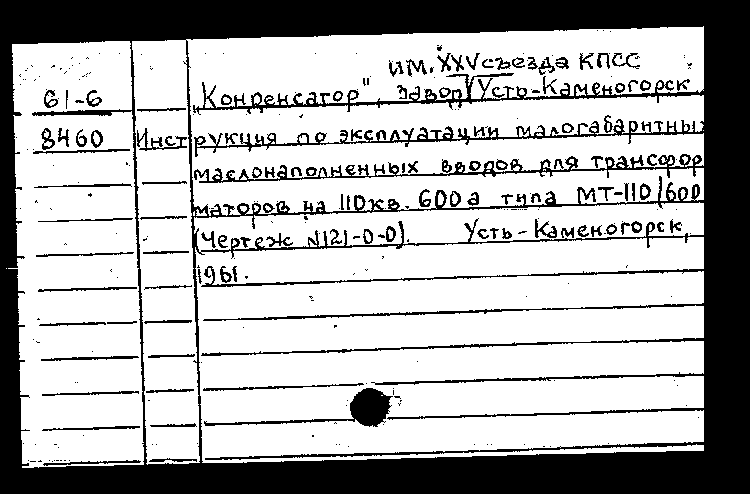 им. XXV съезда КПСС
61-6 "Конденсатор", завод Усть-Каменогорск.
8460 Инструкция по эксплуатации малогабаритных
маслонаполненных вводов для трансфор
маторов на 110 кв. 600 а типа МТ-110/600
(Чертеж N121-0-0). Усть-Каменогорск,
1961.